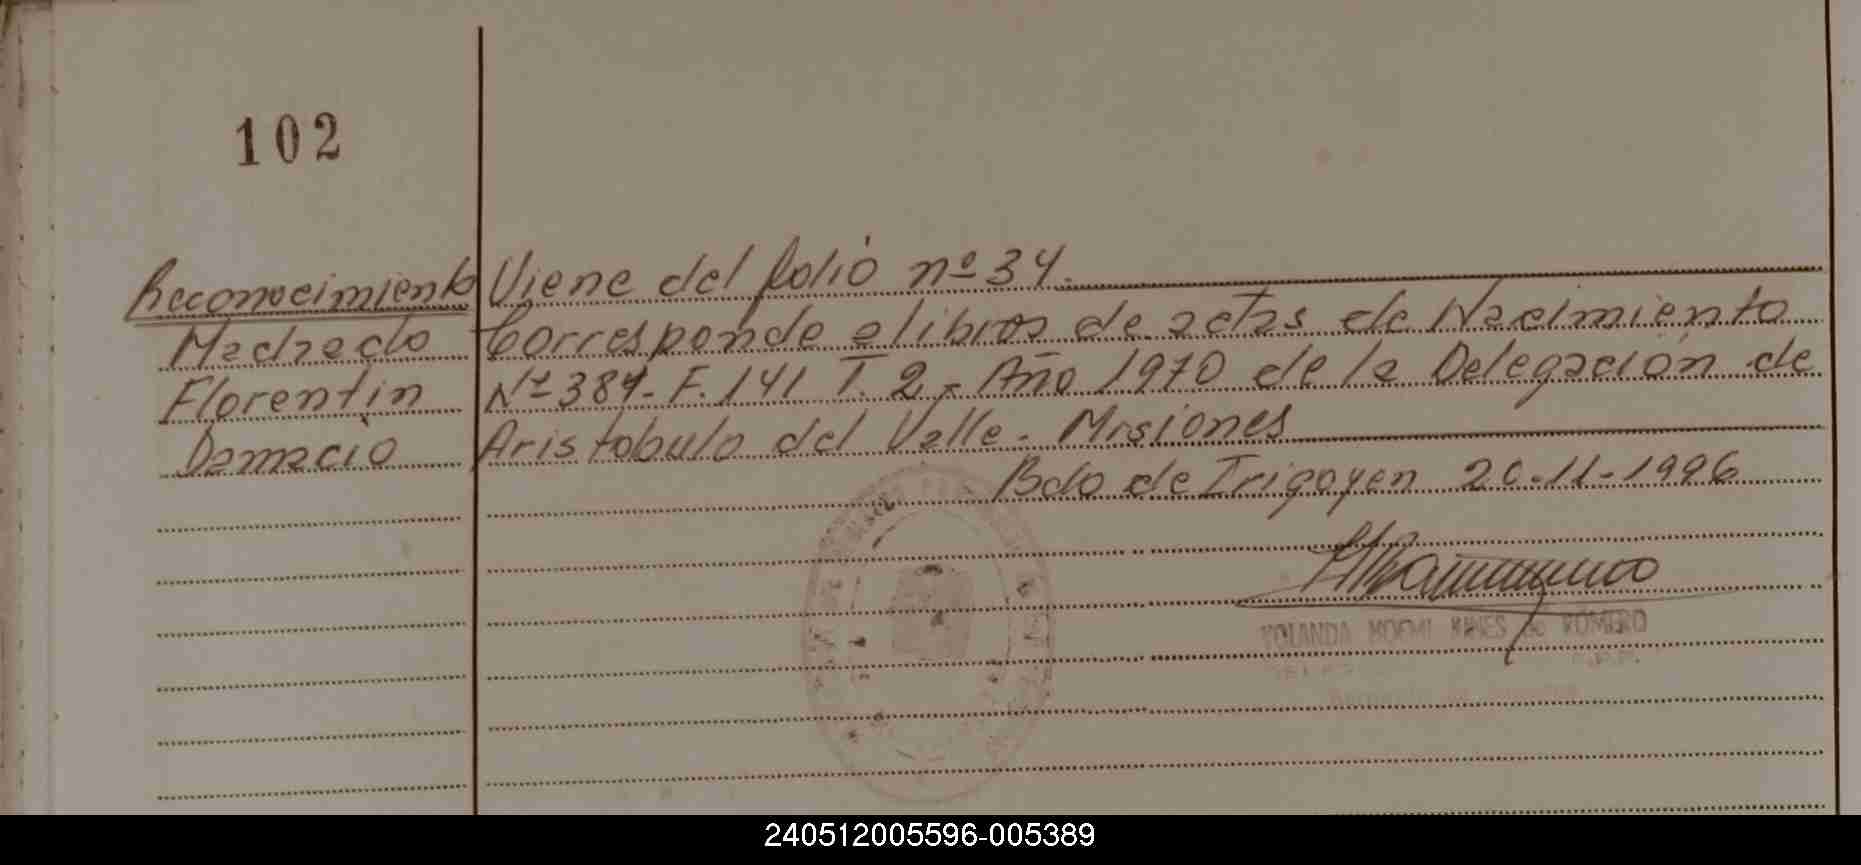 102
Reconocimiento
Machado
Florentin
Damacio
Viene del folio nº 34.
Corresponde a libros de actas de Nacimiento
Nº 384- F. 141 T. 2 - Año 1970 de la Delegación de
Aristobulo del Valle - Misiones
Bdo de Irigoyen 20-11-1996
YOLANDA NOEMI de ROMERO
240512005596-005389